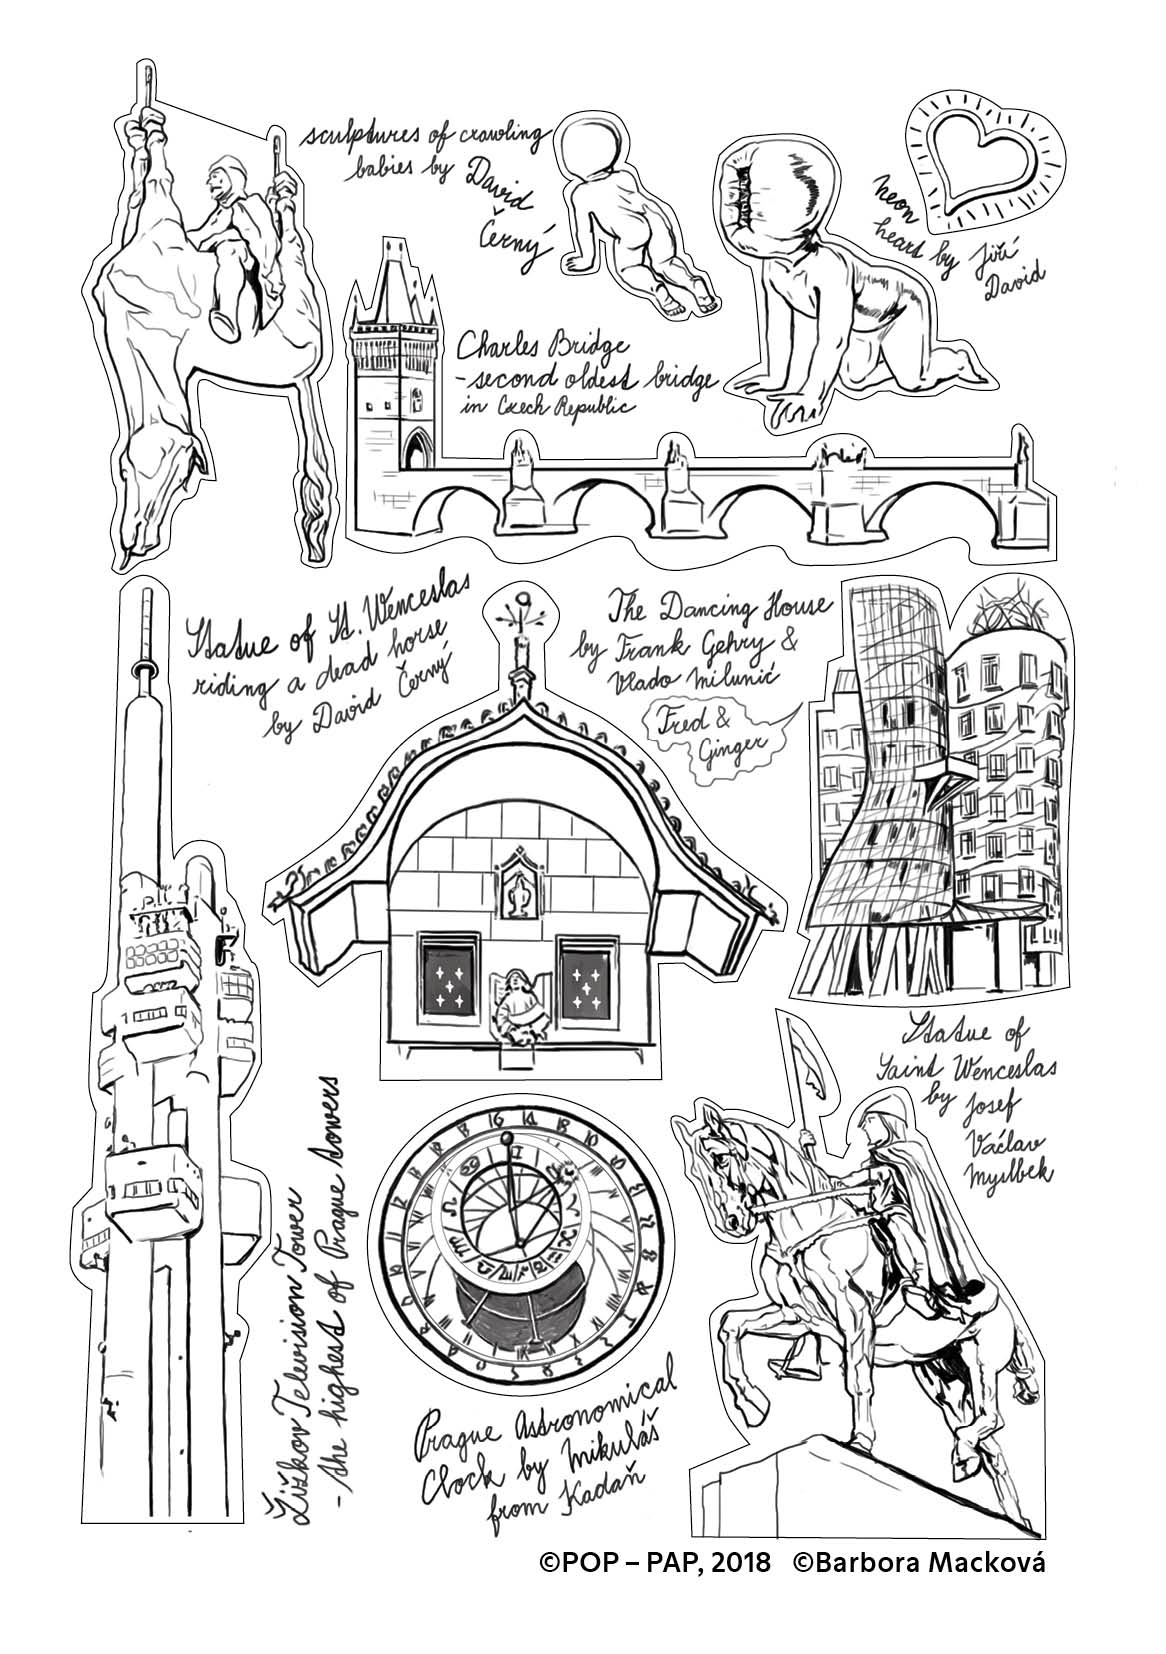 sculptures of crawling
babies by David
Černý
neon
heart by Jiří
David
Charles Bridge
- second oldest bridge
in Czech Republic
Statue of St. Wenceslas
riding a dead horse
by David Černý
The Dancing House
by Frank Gehry &
Vlado Milunić
Fred &
Ginger
Statue of
Saint Wenceslas
by Josef
Václav
Myslbek
Žižkov Television Tower
- the highest of Prague towers
Prague Astronomical
Clock by Mikuláš
from Kadaň
©POP – PAP, 2018 ©Barbora Macková